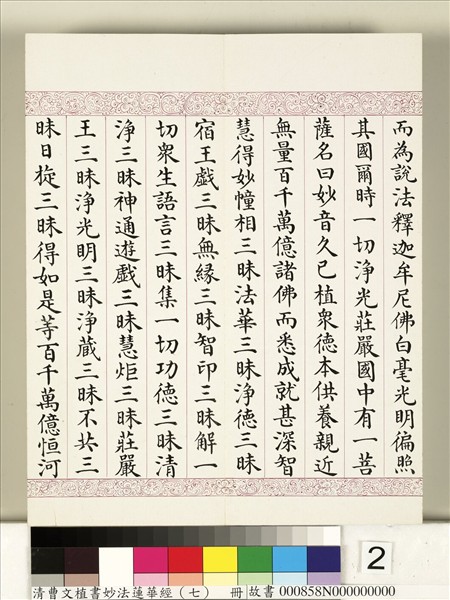 而為說法釋迦牟尼佛白毫光明徧照
其國爾時一切淨光莊嚴國中有一菩
薩名曰妙音久已植衆德本供養親近
無量百千萬億諸佛而悉成就甚深智
慧得妙幢相三昧法華三昧淨德三昧
宿王戲三昧無緣三昧智印三昧解一
切衆生語言三昧集一切功德三昧清
淨三昧神通遊戲三昧慧炬三昧莊嚴
王三昧淨光明三昧淨藏三昧不共三
昧日旋三昧得如是等百千萬億恒河
2
清曹文植書妙法蓮華經（七） 冊 故書 000858N000000000